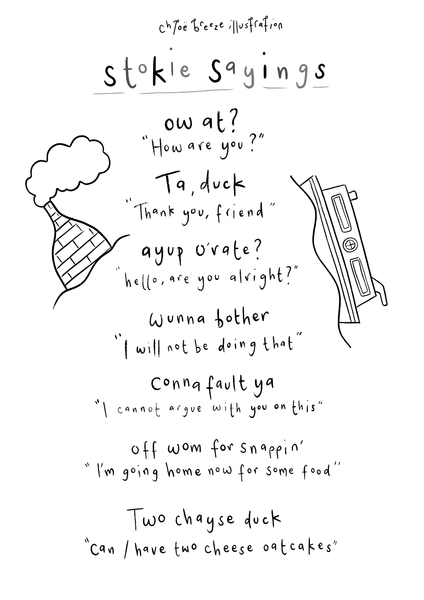 chloë breeze illustration
stokie sayings
ow at?
"How are you?"
Ta, duck
"Thank you, friend"
ayup o'rate?
"hello, are you alright?"
wunna bother
"I will not be doing that"
conna fault ya
"I cannot argue with you on this"
off wom for snappin'
"I'm going home now for some food"
Two chayse duck
"Can I have two cheese oatcakes"